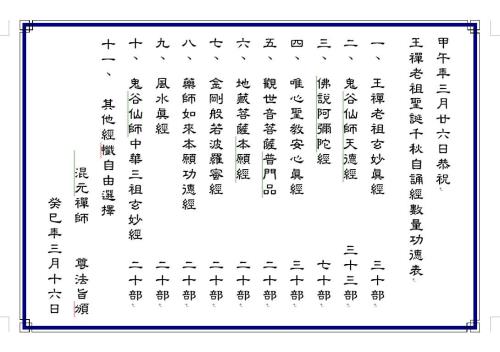 甲午年三月廿六日恭祝
王禪老祖聖誕千秋自誦經數量功德表
一、王禪老祖玄妙眞經 三十部
二、鬼谷仙師天德經 三十三部
三、佛說阿彌陀經 七十部
四、唯心聖教安心眞經 三十部
五、觀世音菩薩普門品 二十部
六、地藏菩薩本願經 二十部
七、金剛般若波羅蜜經 二十部
八、藥師如來本願功德經 二十部
九、風水眞經 二十部
十、鬼谷仙師中華三祖玄妙經 二十部
十一、其他經懺自由選擇
混元禪師 尊法旨頒
癸巳年三月十六日